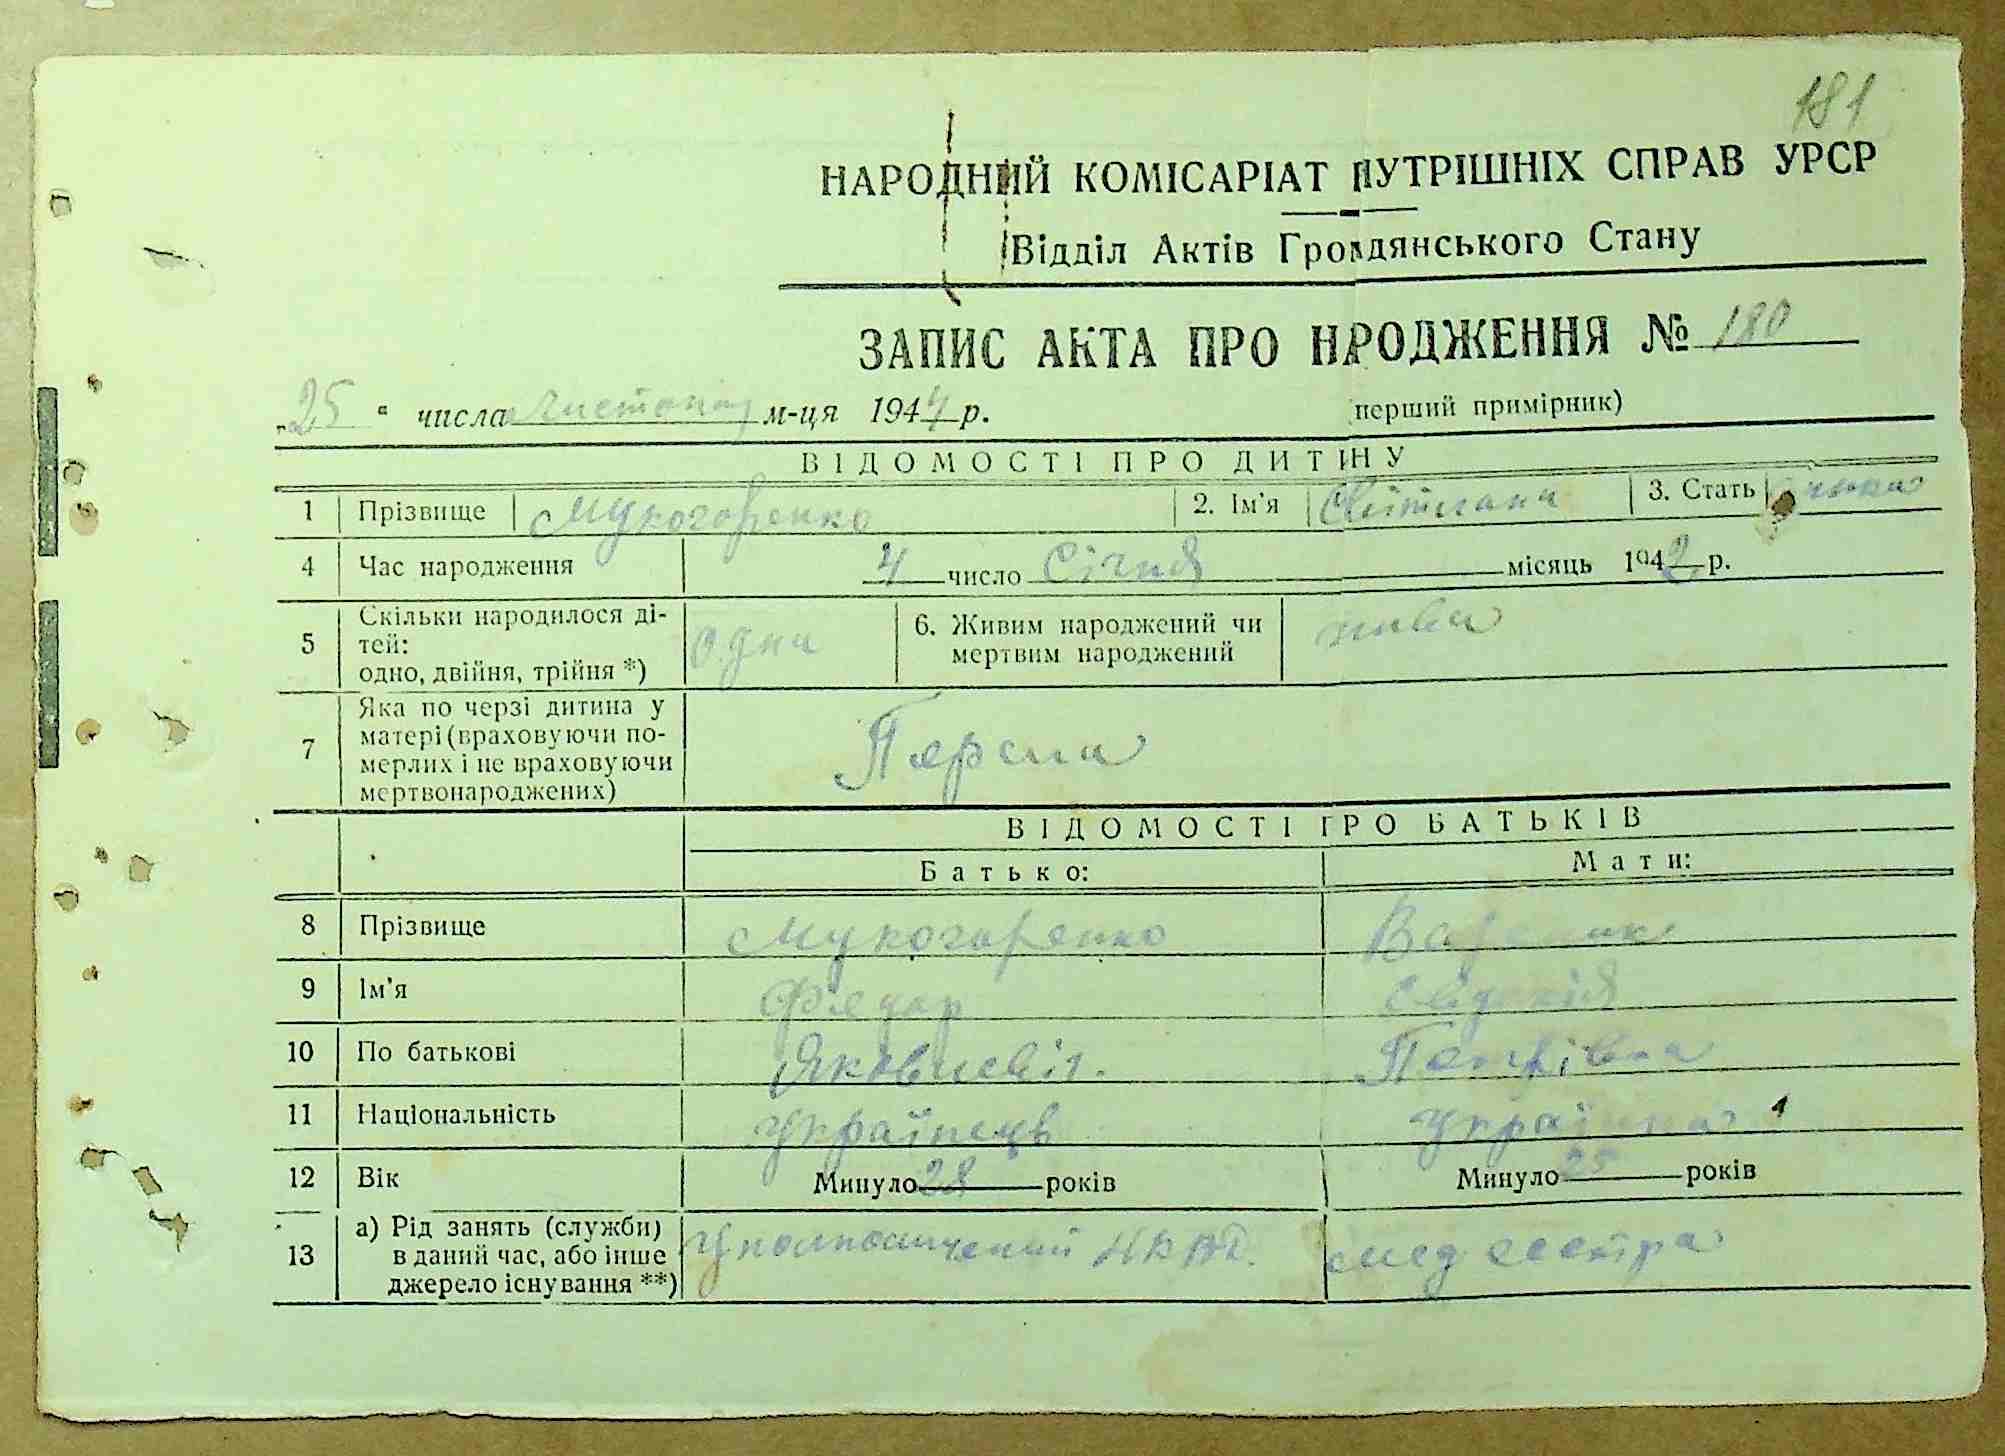 181
НАРОДНИЙ КОМІСАРІАТ ВНУТРІШНІХ СПРАВ УРСР
Відділ Актів Громадянського Стану
ЗАПИС АКТА ПРО НАРОДЖЕННЯ № 180
„25“ числа листопад м-ця 1944 р. (перший примірник)
ВІДОМОСТІ ПРО ДИТИНУ
1 Прізвище Мукогоренко 2. Ім'я Світлана 3. Стать
4 Час народження 4 число Січня місяць 1942 р.
5 Скільки народилося ді-
тей:
одно, двійня, трійня *) одна 6. Живим народжений чи
мертвим народжений жива
7 Яка по черзі дитина у
матері (враховуючи по-
мерлих і не враховуючи
мертвонароджених) Перша
ВІДОМОСТІ ПРО БАТЬКІВ
Батько: Мати:
8 Прізвище Мукогоренко
9 Ім'я Федор Євдокія
10 По батькові Яковлевіч. Петрівна
11 Національність Українець Українка
12 Вік Минуло 28 років Минуло 25 років
13 а) Рід занять (служби)
в даний час, або інше
джерело існування **) Уполномочений НКВД. мед сестра